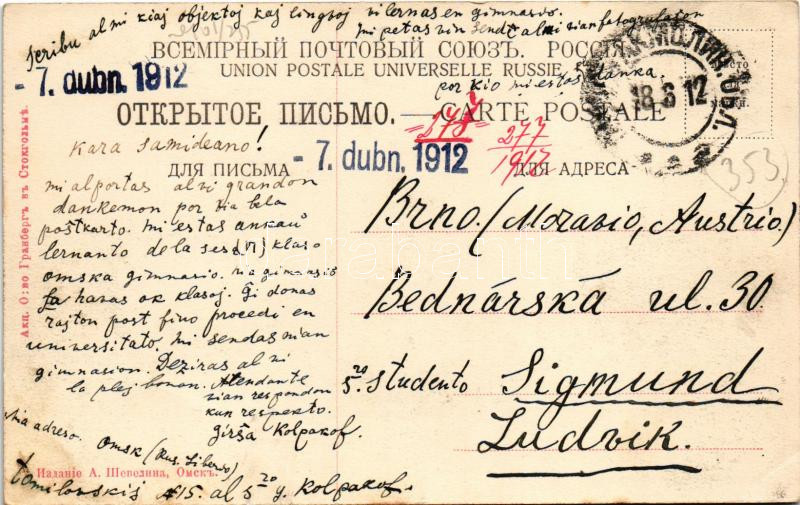 skribu al mi kiaj objektoj kaj lingvoj vi lernas en gimnasio.
mi petas vin sendi al mi vian fotografaĵon
por kio mi estas danka.
ВСЕМІРНЫЙ ПОЧТОВЫЙ СОЮЗЪ. РОССІЯ.
UNION POSTALE UNIVERSELLE RUSSIE.
- 7. dubn. 1912
ОТКРЫТОЕ ПИСЬМО. — CARTE POSTALE
18 3 12
278
277
1912
353
- 7. dubn. 1912
ДЛЯ ПИСЬМА
ДЛЯ АДРЕСА
Kara samideano!
mi alportas al vi grandon
dankemon por via bela
postkarto. mi estas ankaŭ
lernanto de la ses(n) klaso
omska gimnasio. nia gimnasio
havas ok klasoj. Ĝi donas
rajton post fino procedi en
universitato. mi sendas mian
gimnasion. Deziras al vi
la plej bonan. Atendante
vian respondon
kun respekto.
Girŝa Kolpakof.
Mia adreso. Omsk (Rus. Siberio)
Tomilovskij №15. al S-ro g. Kolpakof.
Brno. (Moravio, Austrio.)
Bednárská ul. 30
S-ro studento Sigmund
Ludvik.
Изданіе А. Шевелина, Омскъ.
Акц. О:во Гранбергъ въ Стокгольмъ.